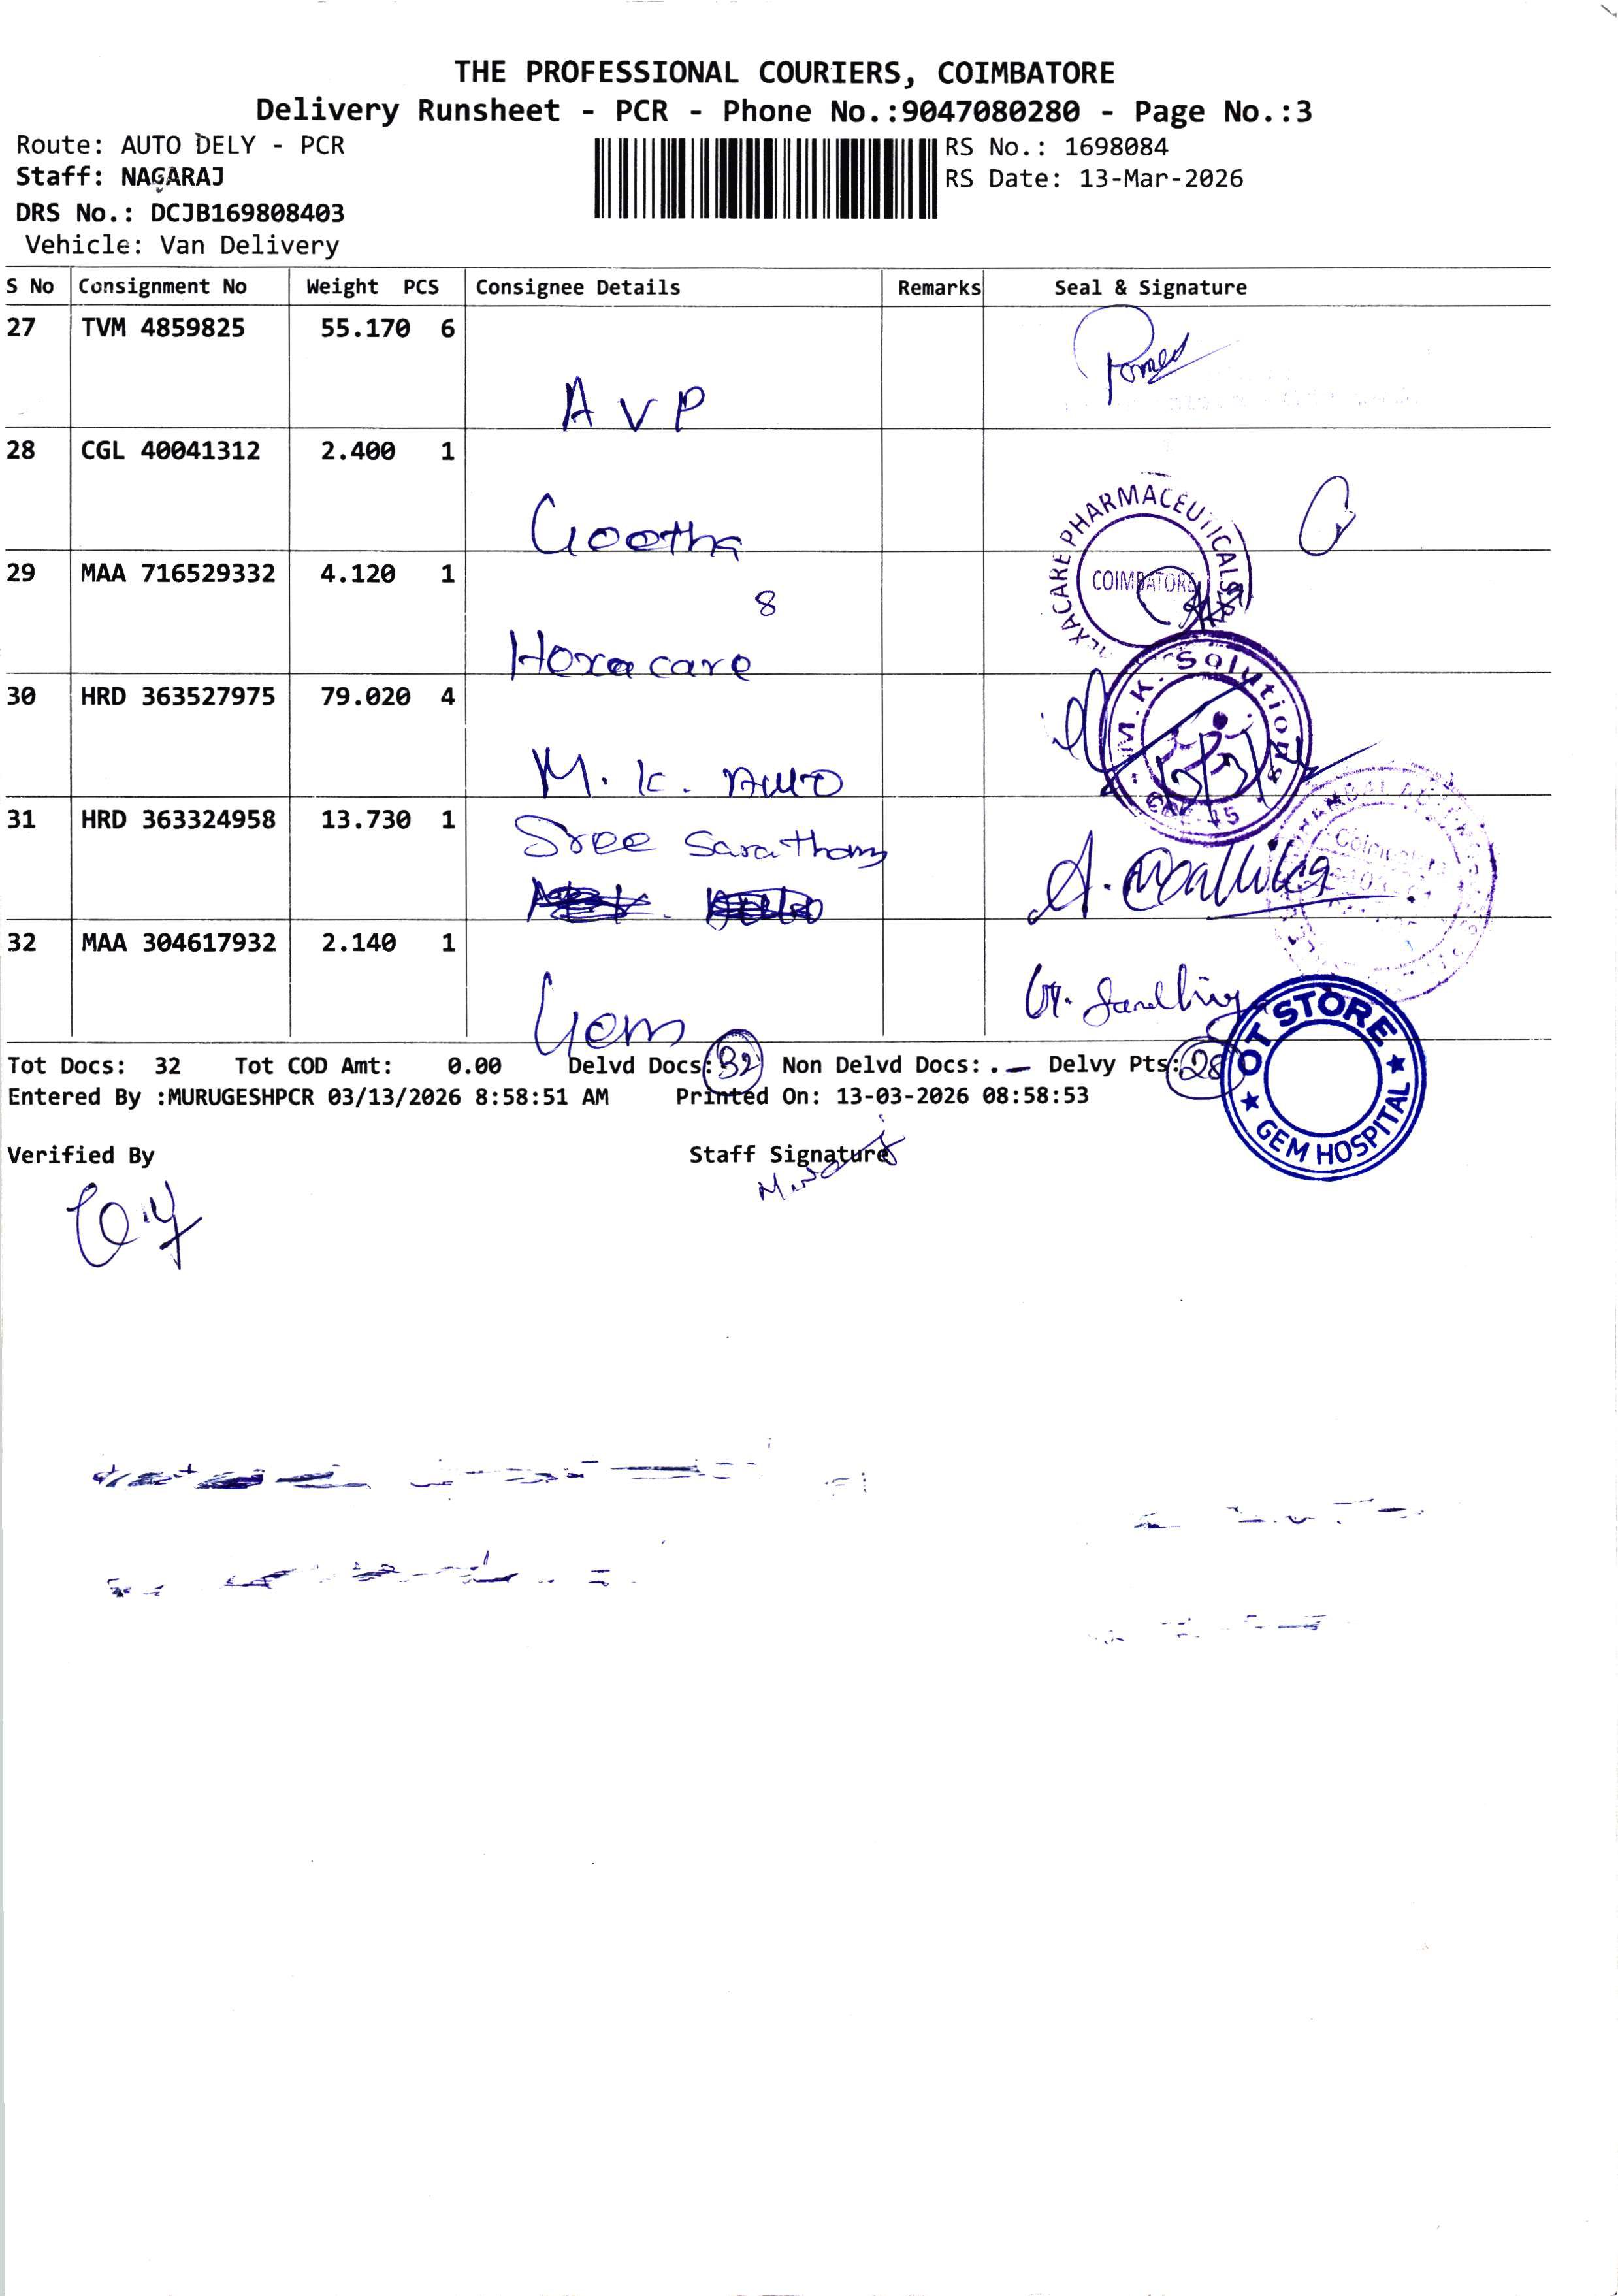 THE PROFESSIONAL COURIERS, COIMBATORE
Delivery Runsheet - PCR - Phone No.:9047080280 - Page No.:3
Route: AUTO DELY - PCR
RS No.: 1698084
Staff: NAGARAJ
RS Date: 13-Mar-2026
DRS No.: DCJB169808403
Vehicle: Van Delivery
S No Consignment No Weight PCS Consignee Details Remarks Seal & Signature
27 TVM 4859825 55.170 6
AVP
28 CGL 40041312 2.400 1
Geetha
29 MAA 716529332 4.120 1
8
Hexacare
HEXACARE PHARMACEUTICALS
COIMBATORE
30 HRD 363527975 79.020 4
M.K. Auto
M.K. Solutions
CBE-15
31 HRD 363324958 13.730 1
Sree Saratham
A. Mallika
32 MAA 304617932 2.140 1
Gem
OT STORE
GEM HOSPITAL
Tot Docs: 32 Tot COD Amt: 0.00 Delvd Docs: 32 Non Delvd Docs: . — Delvy Pts: 28
Entered By :MURUGESHPCR 03/13/2026 8:58:51 AM Printed On: 13-03-2026 08:58:53
Verified By Staff Signature